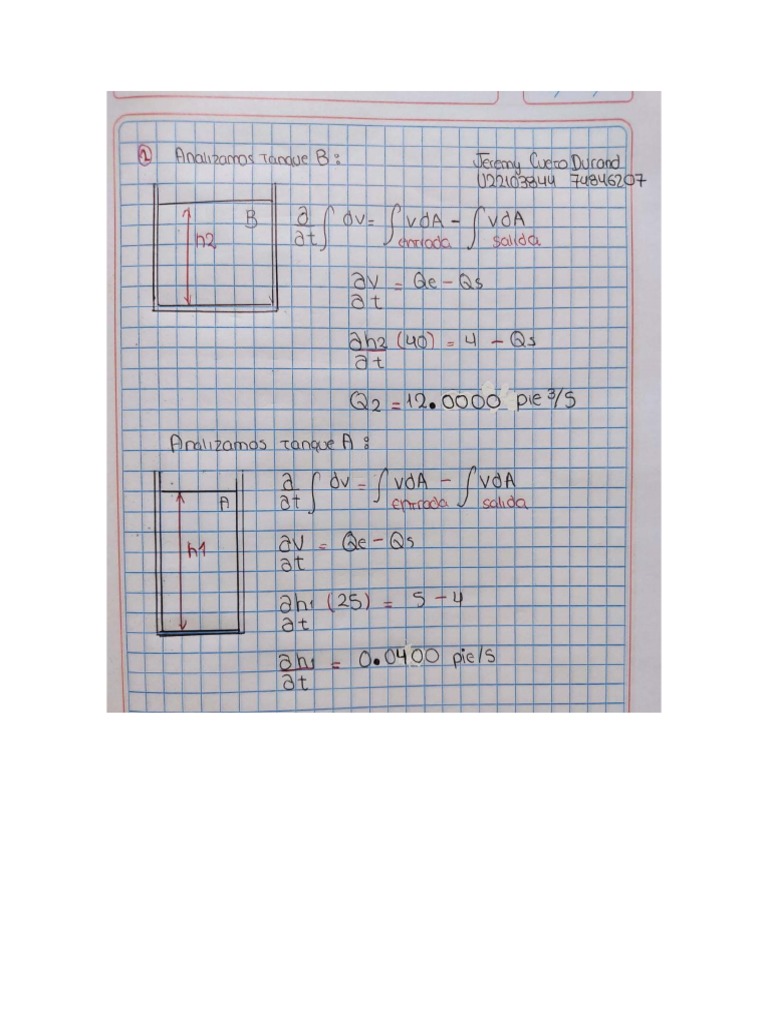 ① Analizamos Tanque B:
Jeremy Cueto Durand
U22103844 74846207
B
h2
∂/∂t ∫ dv = ∫ VdA - ∫ VdA
entrada salida
∂V/∂t = Qe - Qs
∂h2/∂t (40) = 4 - Qs
Q2 = 12.0000 pie³/s
Analizamos tanque A:
A
h1
∂/∂t ∫ dv = ∫ VdA - ∫ VdA
entrada salida
∂V/∂t = Qe - Qs
∂h1/∂t (25) = 5 - 4
∂h1/∂t = 0.0400 pie/s